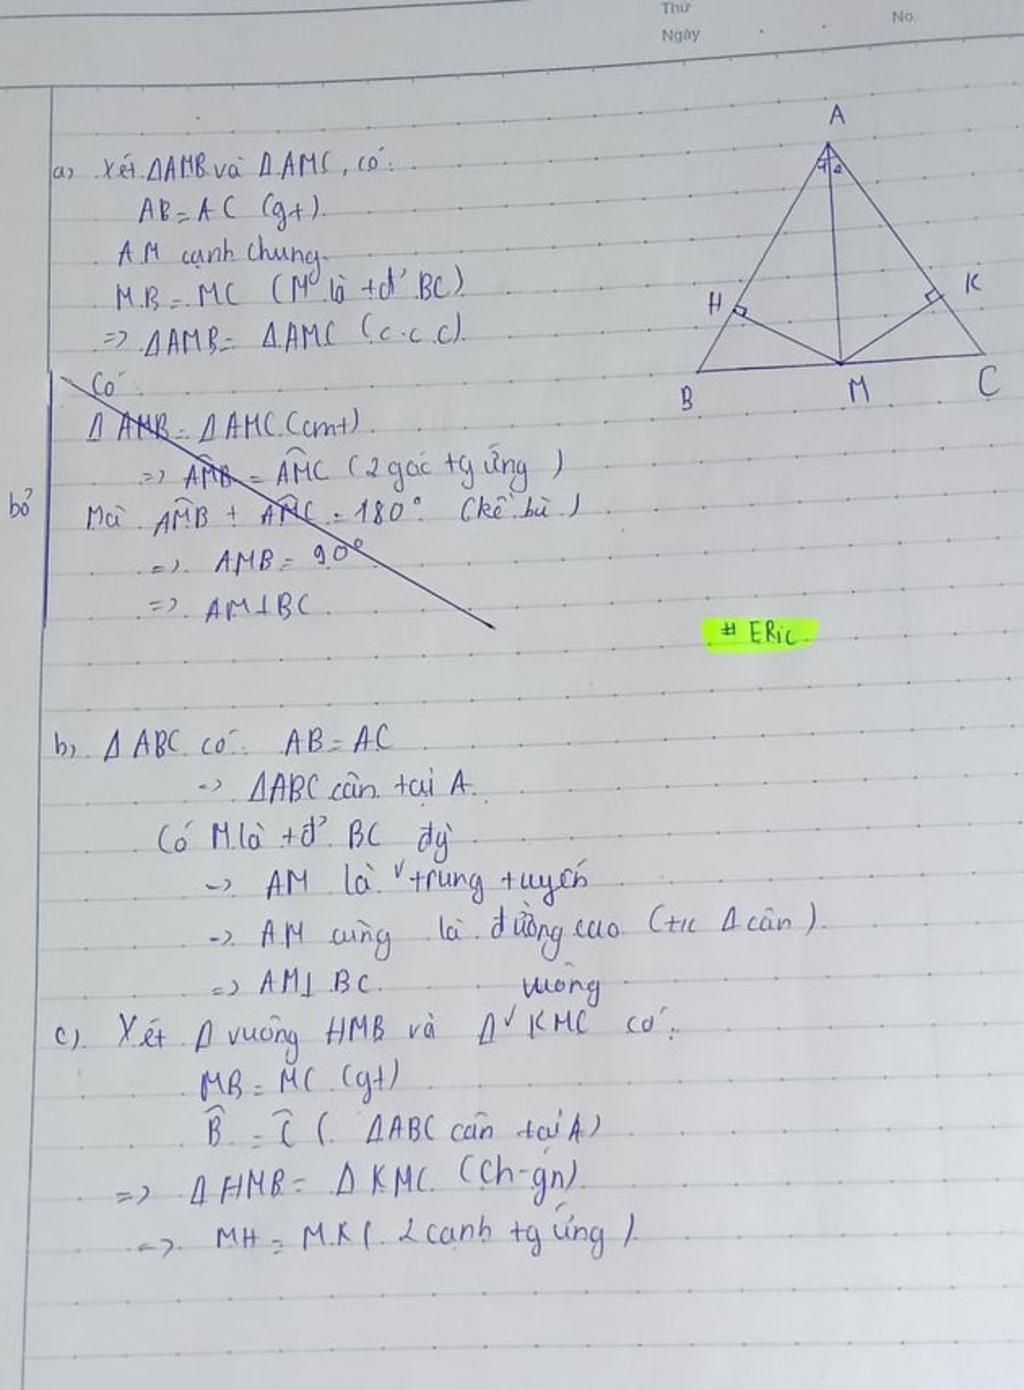 Thứ
Ngày
No.
a) Xét ΔAMB và ΔAMC, có:
AB = AC (gt).
AM cạnh chung.
MB = MC (M là tđ' BC)
=> ΔAMB = ΔAMC (c.c.c)
A
H
K
B
M
C
bỏ
Có
ΔAMB = ΔAMC (cmt)
=> AM̂B = AM̂C (2 góc tg ứng)
Mà AM̂B + AM̂C = 180° (kề bù)
=> AMB = 90°
=> AM⊥BC
# ERic
b) ΔABC có: AB = AC
=> ΔABC cân tại A.
Có M là tđ' BC
=> AM là đg trung tuyến
=> AM cũng là đường cao (t/c Δ cân)
=> AM⊥BC.
c) Xét Δ vuông HMB và Δ vuông KMC có:
MB = MC (gt)
B̂ = Ĉ (ΔABC cân tại A)
=> ΔHMB = ΔKMC (Ch-gn)
=> MH = MK (2 cạnh tg ứng).